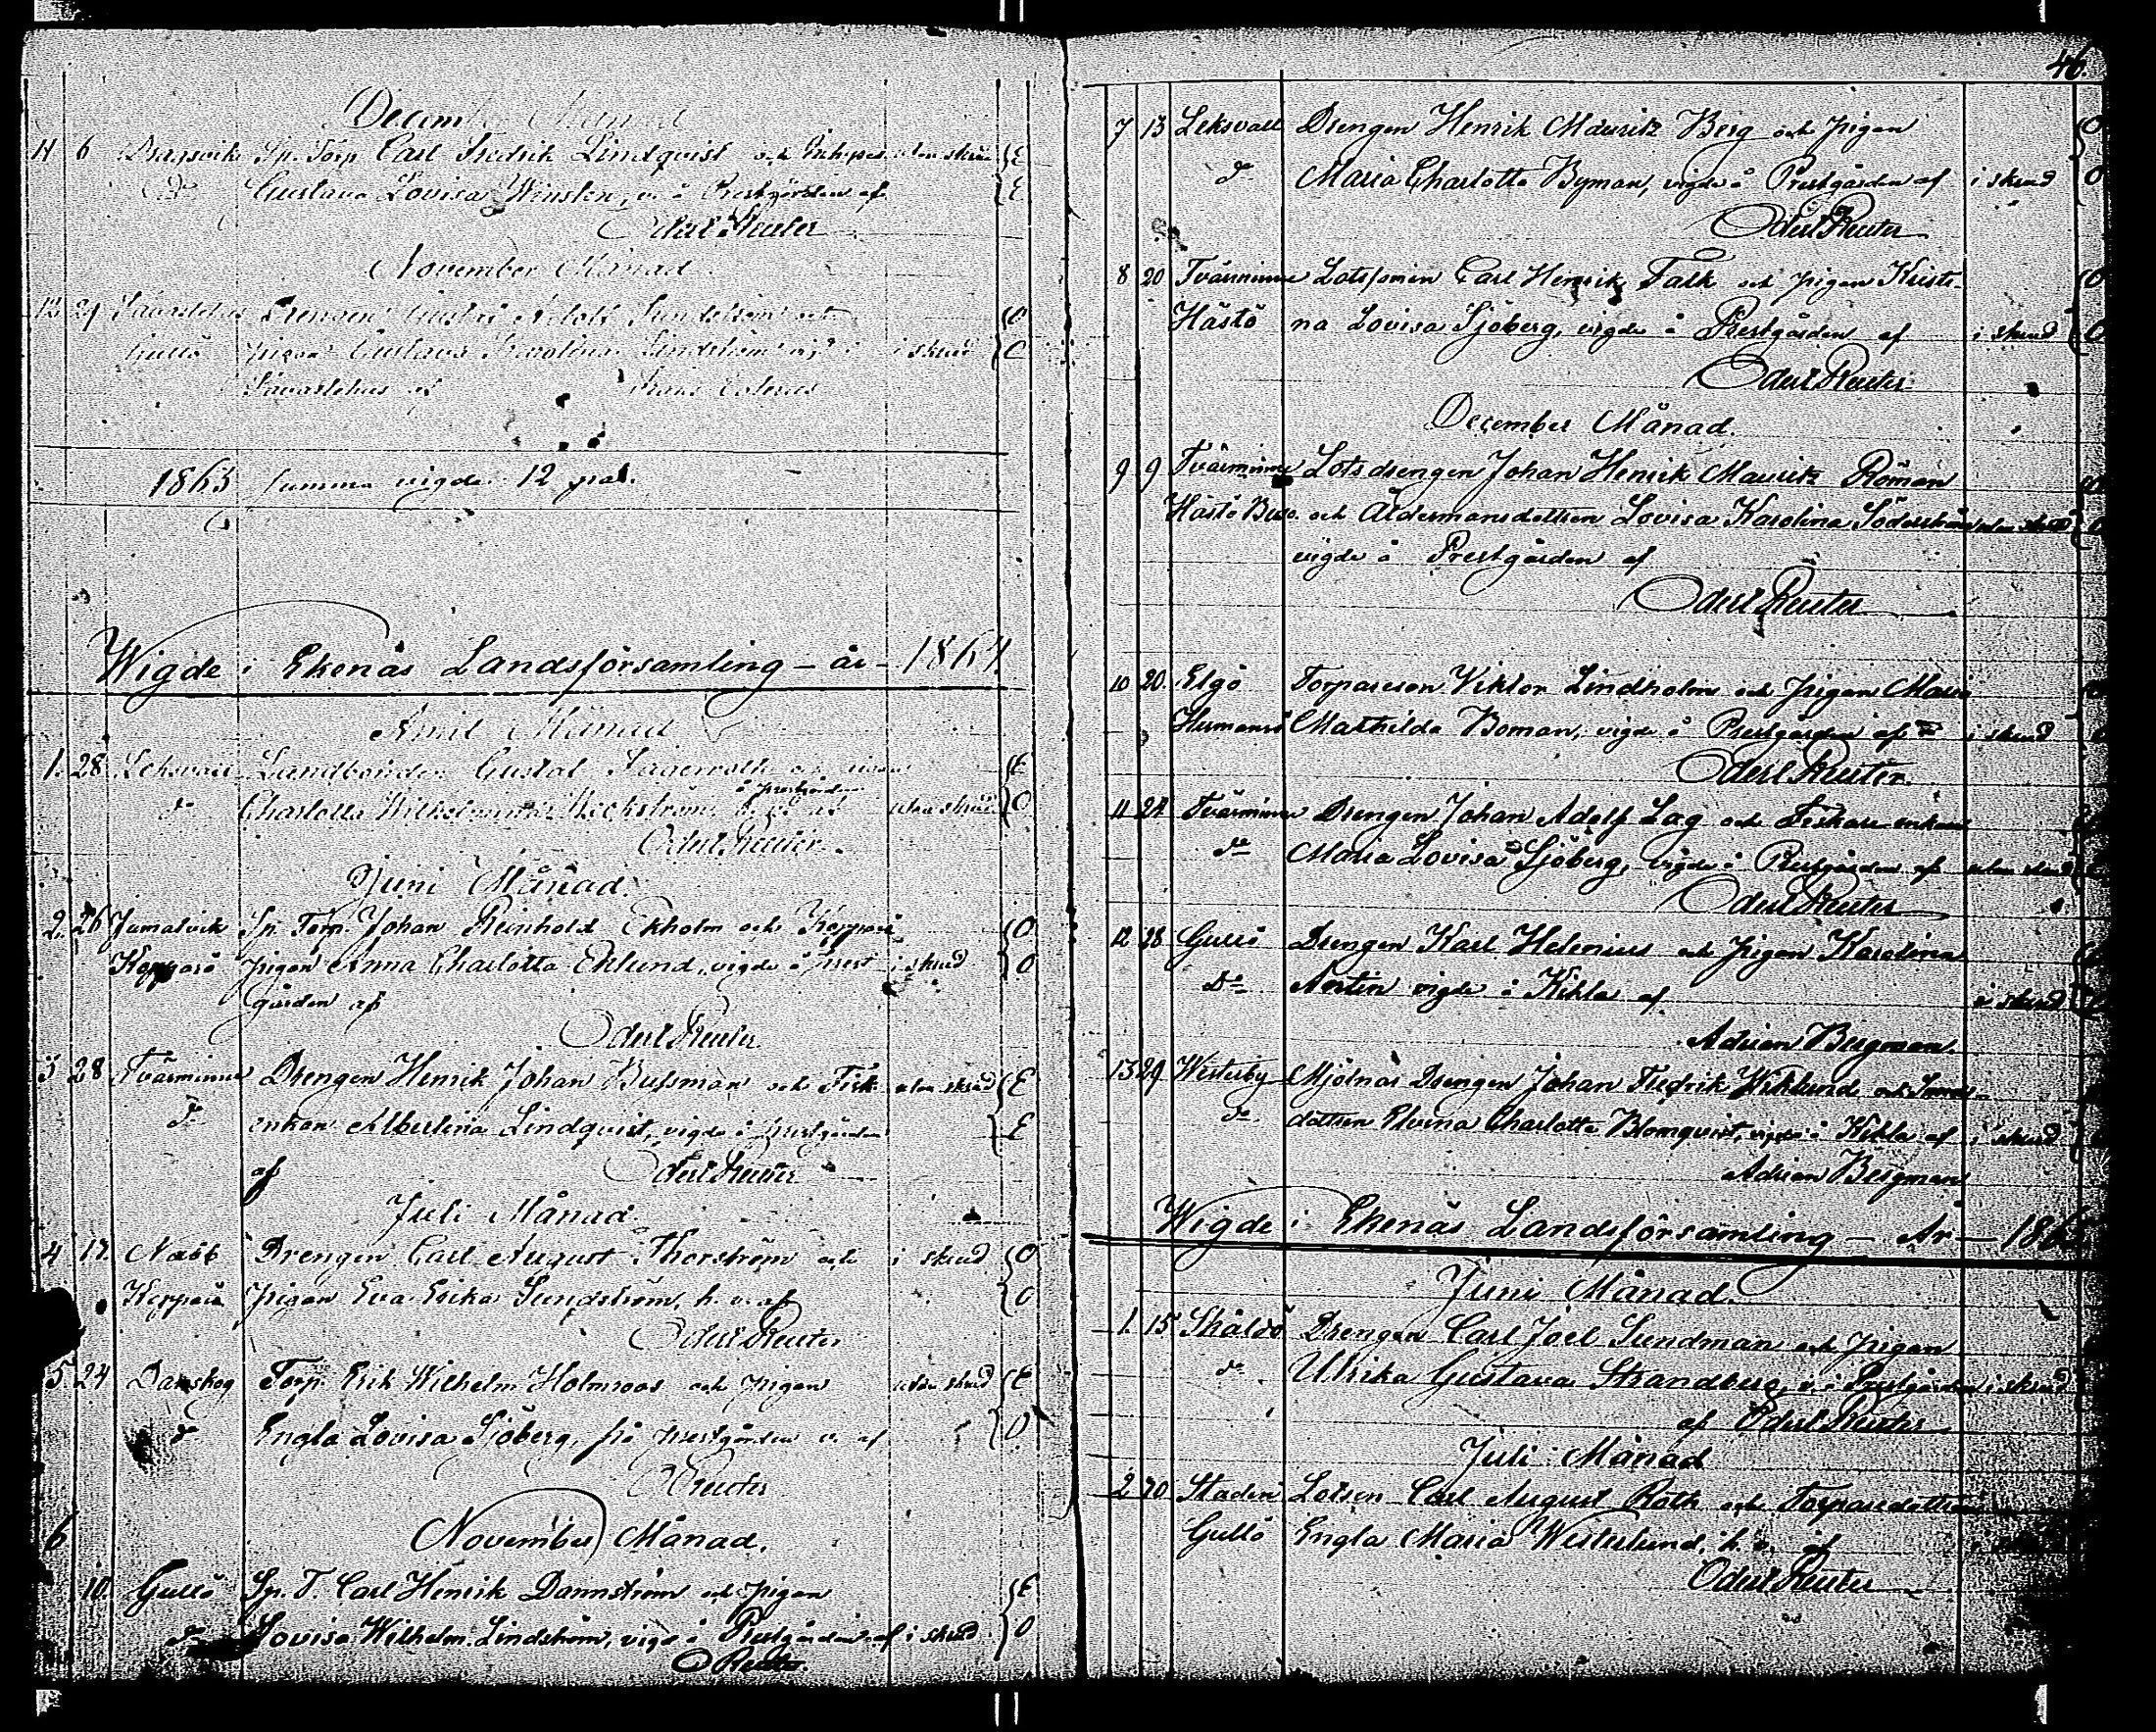 December Månad
11 6 Dragsvik Sp. Torp. Carl Fredrik Lindqvist och Inhyses utan skrud E
do Gustava Lovisa Winsten, v. å Prestgården af E
Odert Reuter
November Månad
12 29 Drengen Gustaf Adolf Sundström och O
Gullö pigan Gustava Karolina Lindström vigd i skrud O
af Frans
1863 summa vigde 12 par.
Wigde i Ekenäs Landsförsamling – år – 1864
April Månad
1. 28 Leksvall Landbonden Gustaf Lagerroth och E
å prestgården
do Charlotta Wilhelmina af utan skrud O
Odert Reuter
Juni Månad
2. 26 Jumalvik Sp. Torp. Johan Reinhold Ekholm och O
Kopparö pigan Anna Charlotta Eklund, vigde å prest i skrud O
gården af
Odert Reuter
3 28 Tvärminne Drengen Henrik Johan Bussman och Fisk utan skrud E
do enkan Albertina Lindqvist, vigde å prestgården E
af Odert Reuter
Juli Månad
4 17. Näsb Drengen Carl August Thorström och i skrud O
pigan Eva Erika Sundström, h. v. af O
Odert Reuter
5 24 Danskog Torp. Erik Wilhelm Holmroos och pigan utan skrud E
do Engla Lovisa Sjöberg, på prestgården v. af O
O Reuter
6 November Månad.
10. Gullö Sp. T. Carl Henrik Dannström och pigan E
do Lovisa Wilhelm. Lindström, vigde å Prestgården af i skrud O
O Reuter.
46.
7 13 Leksvall Drengen Henrik Mauritz Berg och pigan O
do Maria Charlotta Byman, vigde å Prestgården af i skrud O
Odert Reuter
8 20 Tvärminne Lotsfomen Carl Henrik Falk och pigan Kristi- O
Hästö na Lovisa Sjöberg, vigde å Prestgården af i skrud O
Odert Reuter
December Månad.
9 9 Tvärminne Lotsdrengen Johan Henrik Mauritz Röman
Hästö Buso. och Åldermansdottren Lovisa Karolina Söderström utan skrud
vigde å Prestgården af
Odert Reuter
10 20. Elgö Torpareson Viktor Lindholm och pigan Maria
Hermansö Mathilda Boman, vigde å Prestgården af i skrud
Odert Reuter
11 27 Tvärminne Drengen Johan Adolf Lag och Fiskare enkan
do Maria Lovisa Sjöberg, vigde å Prestgården af utan skrud
Odert Reuter
12 28 Gullö Drengen Karl Helenius och pigan Karolina
Do Antin vigde å Kikla af i skrud
Adrian Bergman.
13 29 Westerby Mjölnar Drengen Johan Fredrik Wiklund och
do dottren Elvina Charlotta Blomqvist, vigde å Kikla af i skrud
Adrian Bergman
Wigde i Ekenäs Landsförsamling – År – 186
Juni Månad.
1. 15 Skåldö Drengen Carl Joel Sundman och pigan
do Ulrika Gustava Strandberg, v. i Prestgården i skrud
af Odert Reuter
Juli Månad
2 20 Staden Lotsen Carl August Roth och Torparedottren
Gullö Engla Maria Westerlund, h. v. af
Odert Reuter